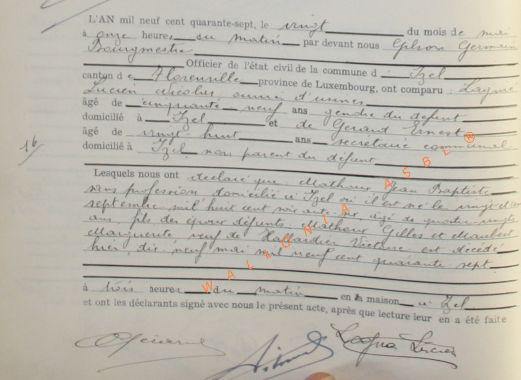 L'AN mil neuf cent quarante-sept, le vingt du mois de mai
à onze heures du matin par devant nous Gilson Germain
Bourgmestre
Officier de l'état civil de la commune d Izel
canton de Florenville province de Luxembourg, ont comparu :
Lucien Nicolas, ouvrier d'usines
âgé de cinquante neuf ans gendre du défunt
domicilié à Izel et de Gerard Ernest
âgé de vingt huit ans secrétaire communal
domicilié à Izel non parent du défunt
16
Lesquels nous ont déclaré que Mathoux Jean Baptiste
sans profession domicilié à Izel où il est né le vingt
septembre mil huit cent soixante six âgé de quatre vingts
ans fils des époux défunts Mathoux Gilles et
Marguerite veuf de Victoire est décédé
hier, dix-neuf mai mil neuf cent quarante sept
à trois heures du matin en la maison à Izel
et ont les déclarants signé avec nous le présent acte, après que lecture leur en a été faite
WALLONIA ASBL